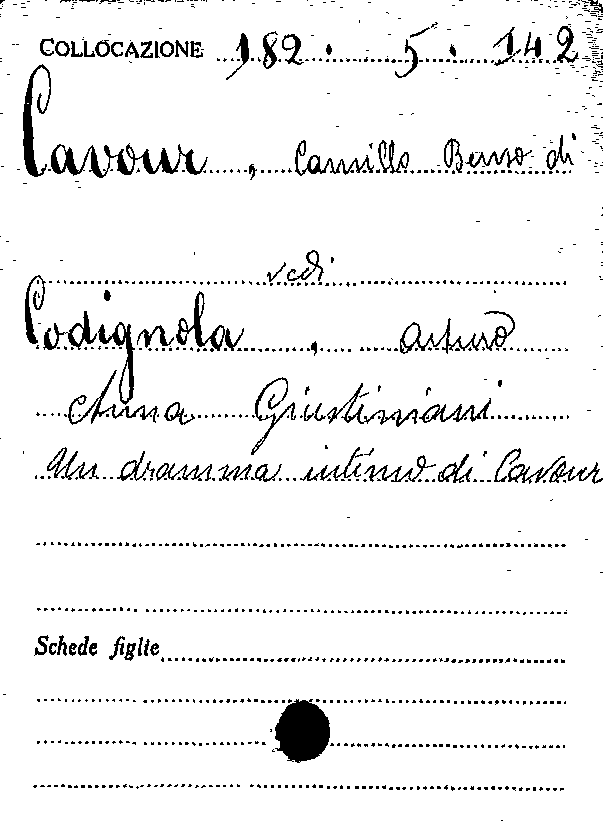 COLLOCAZIONE 182 . 5 . 142
Cavour , Camillo Benso di
vedi
Codignola , Arturo
Anna Giustiniani
Un dramma intimo di Cavour
Schede figlie